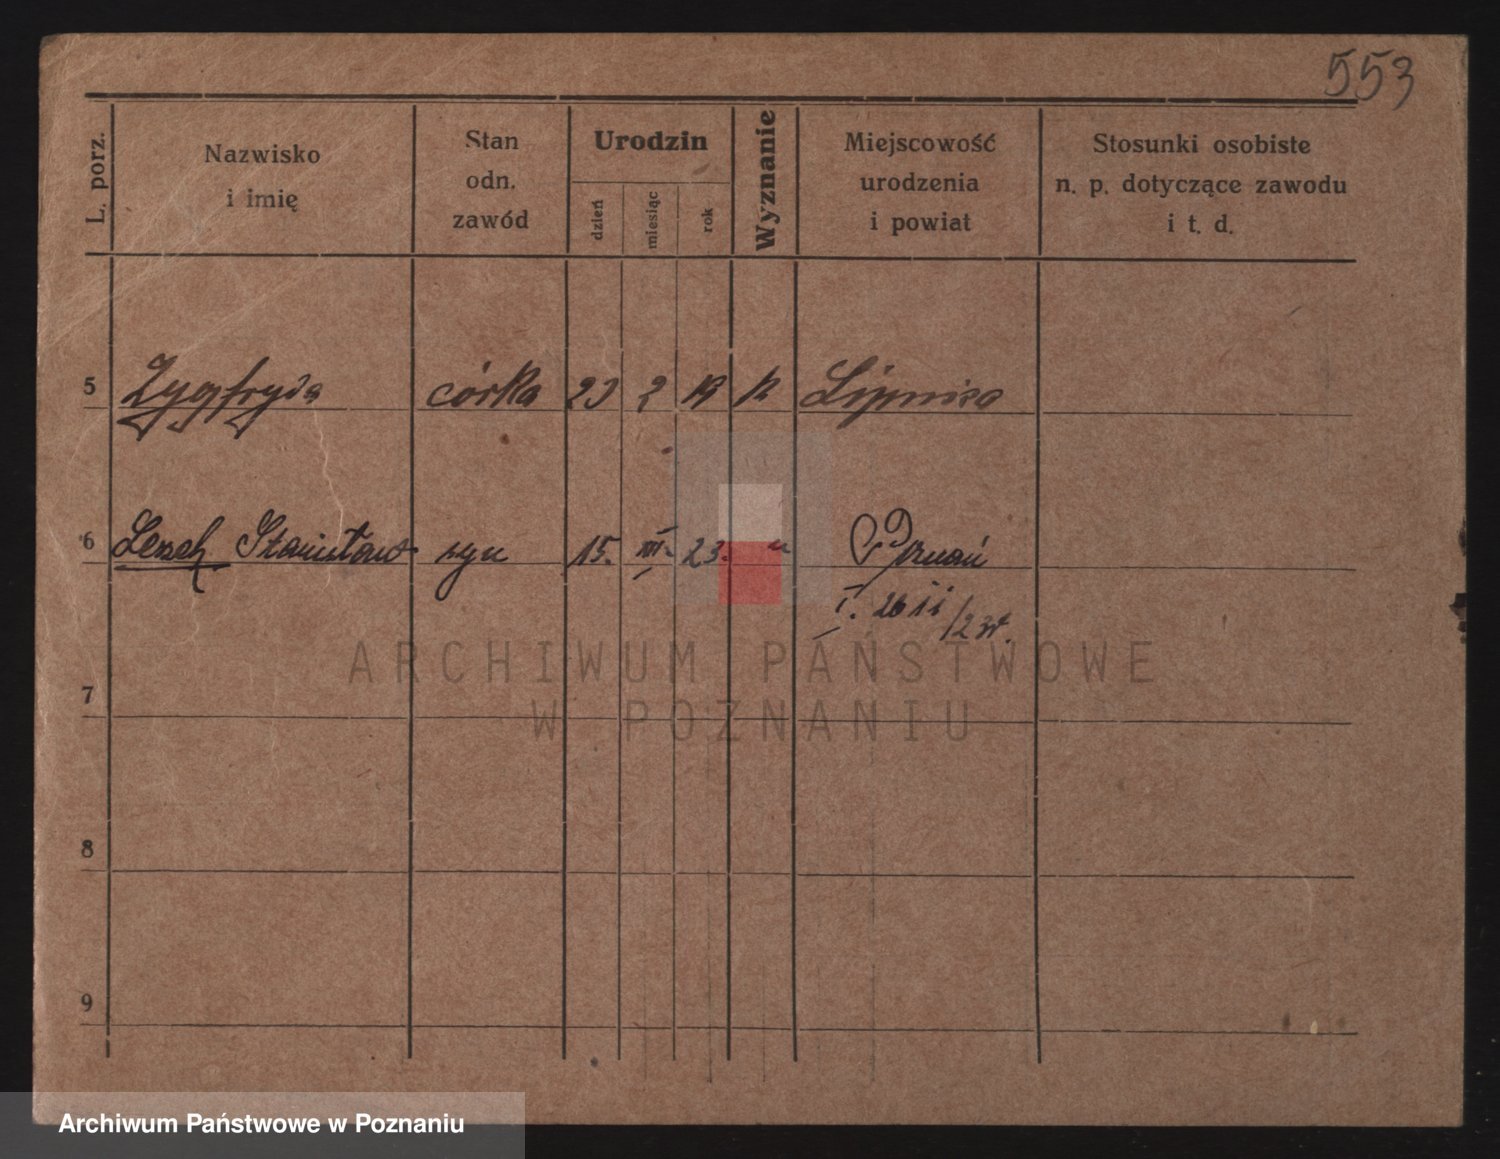 553
L. porz.
Nazwisko
i imię
Stan
odn.
zawód
Urodzin
dzień
miesiąc
rok
Wyznanie
Miejscowość
urodzenia
i powiat
Stosunki osobiste
n. p. dotyczące zawodu
i t. d.
5 Zygfryda córka 23 2 19 k Lipnica
6 Leszek Stanisław syn 15. III. 23. " Poznań
I. 26
ARCHIWUM PAŃSTWOWE
7
W POZNANIU
8
9
Archiwum Państwowe w Poznaniu